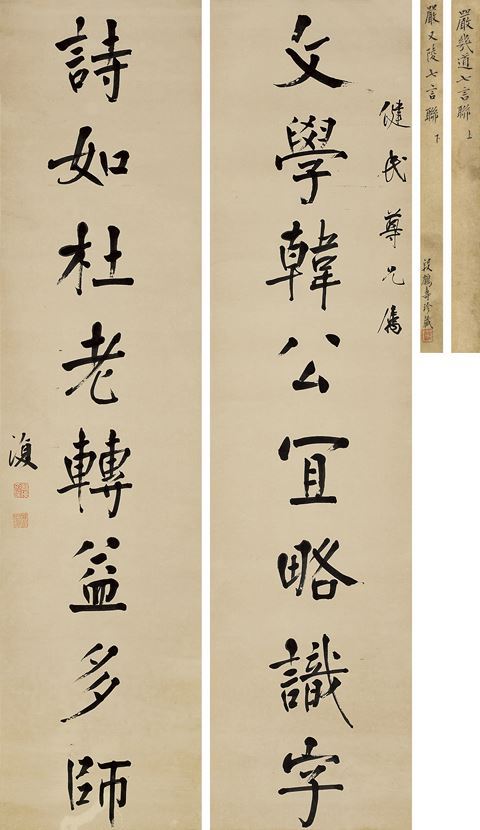 嚴幾道七言聯 上
嚴又陵七言聯 下
鶴壽珍藏
健民尊兄屬
文學韓公宜略識字
詩如杜老轉益多師
復